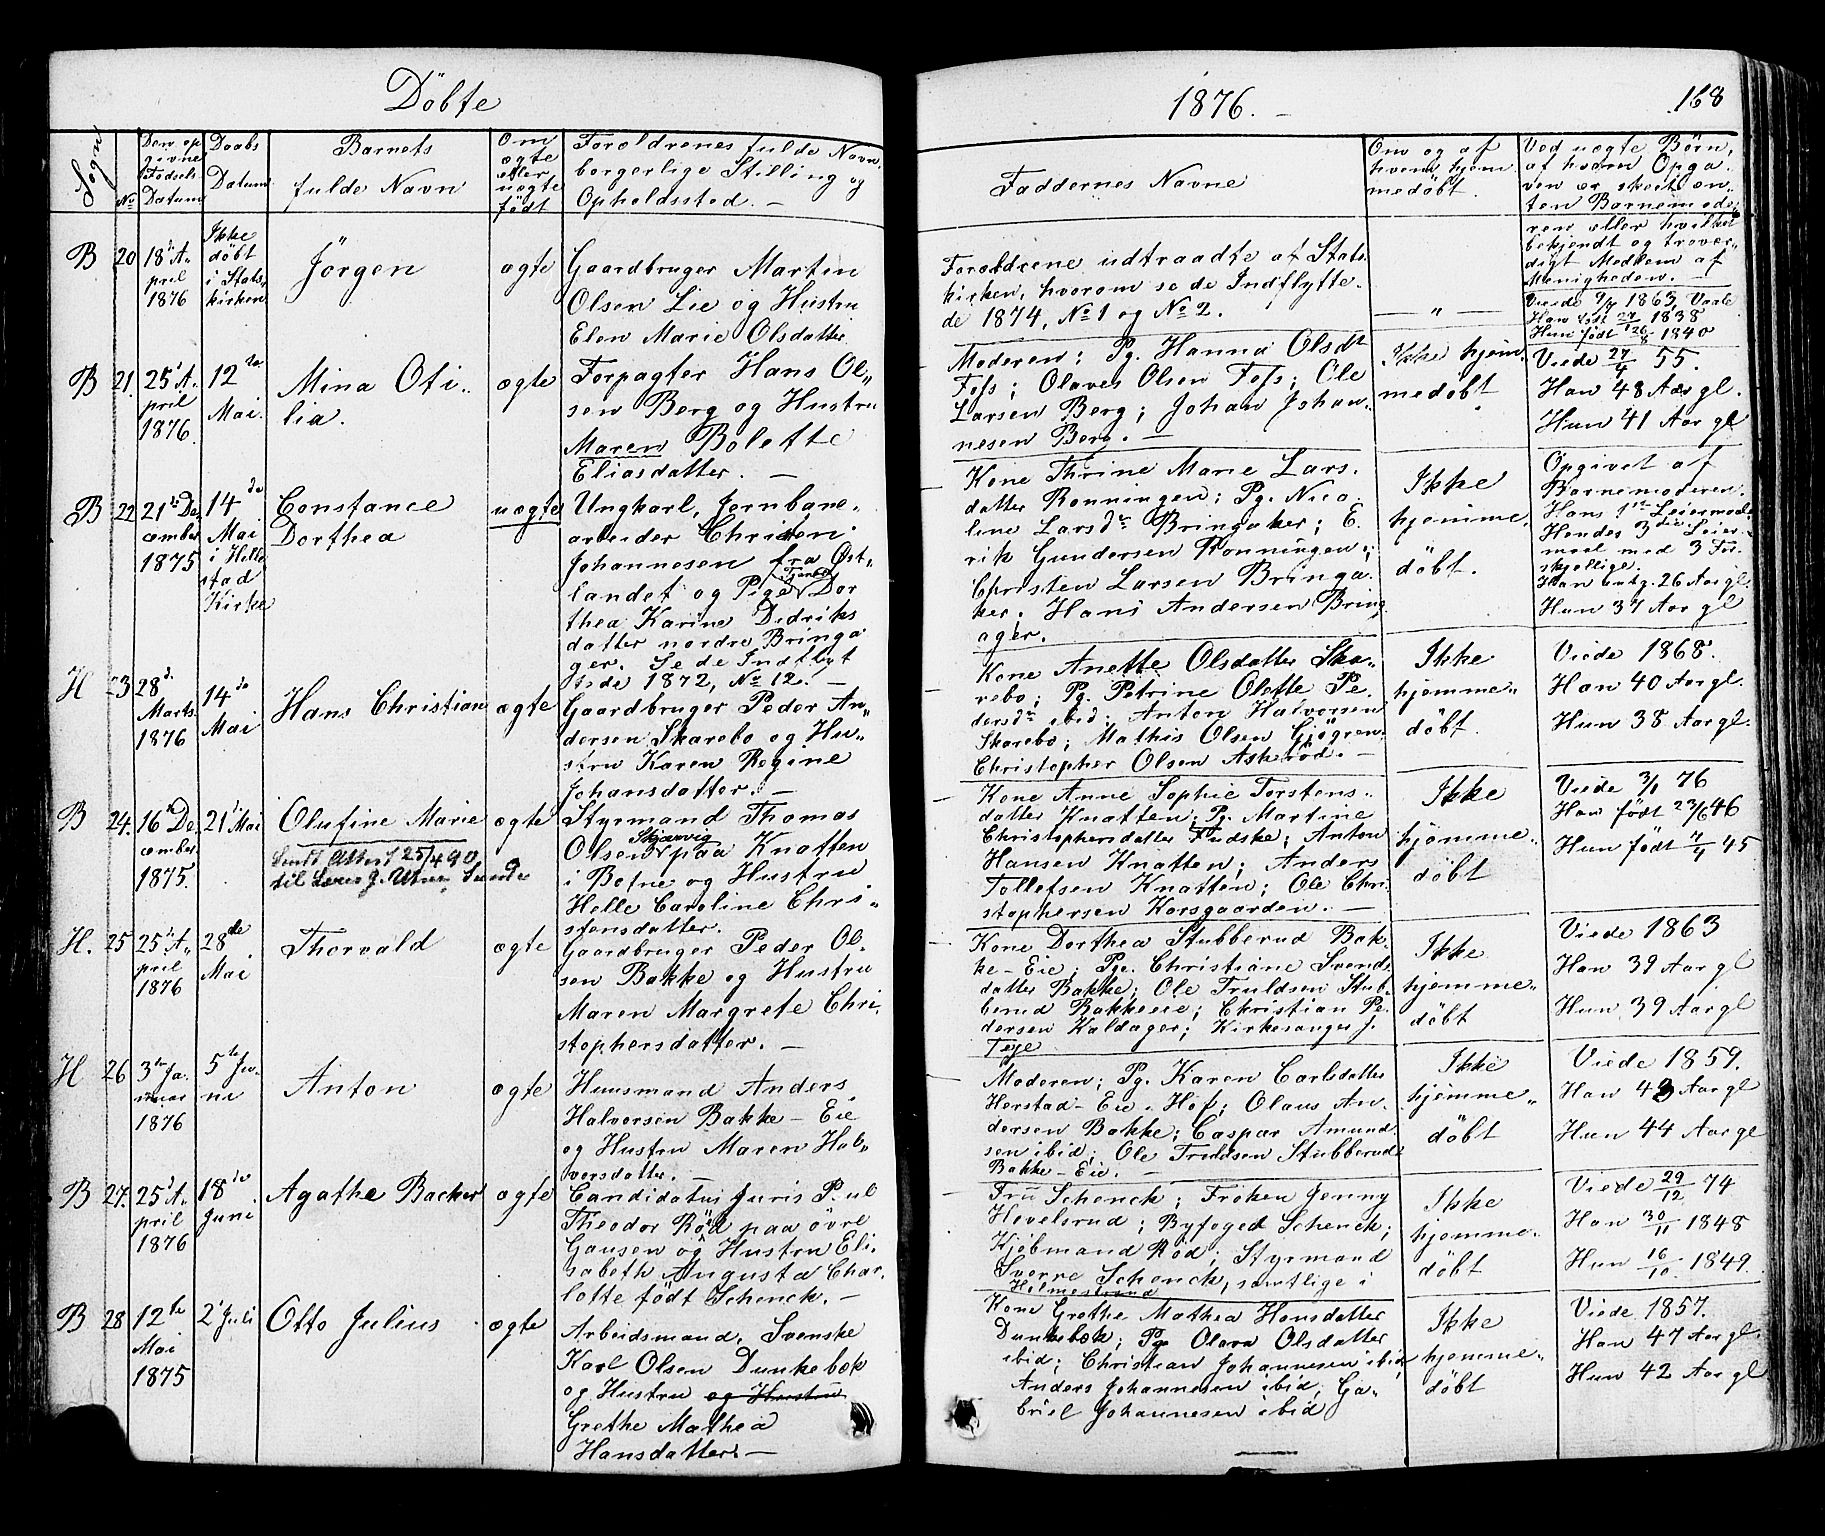 Döbte
1876.
168
Sogn
No
Den op
givne
Födsels
Datum
Daabs
Datum
Barnets
fulde Navn
Om
ægte
eller
uægte
født
Forældrenes fulde Navn,
borgerlige Stilling og
Opholdssted. —
Faddernes Navne
Om og af
hvem hjem
medöbt.
Ved uægte Börn,
af hvem Opga
ven er skeet en
ten Barnemode
ren eller hvilket
bekjendt og trovær
digt Medlem af
Menigheden. —
B
20
18de A
pril
1876
Ikke
döbt
i Stats
kirken
Jörgen
ægte
Gaardbruger Martin
Olsen Lie og Hustru
Elen Marie Olsdatter
Forældrene udtraadte af Stats
kirken, hvorom se de Indflytte
de 1874, No 1 og No 2.
— " —
Viede 1863, Vaale
Han født 1838
Hun født 1840
B
21.
25de A
pril
1876.
12te
Mai.
Mina Oti
lia.
ægte
Forpagter Hans Ol
sen Berg og Hustru
Maren Bolette
Eliasdatter. —
Moderen; Pg. Hanna Olsdr
Foss; Olaves Olsen Foss; Ole
Larsen Berg; Johan Johan
nesen Berg. —
Ikke hjem
medöbt
Viede 27/4 55.
Han 48 Aar gl.
Hun 41 Aar gl
B
22
21de De
cember
1875
14de
Mai
i Hille
stad
Kirke
Constance
Dorthea
uægte
Ungkarl, Jernbane
arbeider Christen
Johannesen fra Øst
landet og Pige Dor
thea Karine Didriks
datter nordre Bringa
ger. Se de Indflyt
tede 1872, No 12. —
Kone Thrine Marie Lars
datter Rønningen; Pg. Nico
line Larsdr Bringaker; E
rik Gundersen Rønningen;
Christen Larsen Bringa
ker; Hans Andersen Bring
ager.
Ikke
hjemme
döbt.
Opgivet af
Barnemoderen.
Hans 1ste Leiermaal
Hendes 3die Leier
maal med 3 For
skjellige.
Han 26 Aar gl
Hun 37 Aar gl
H
23
28de
Marts
1876
14de
Mai
Hans Christian
ægte
Gaardbruger Peder An
dersen Skarebo og Hu
stru Karen Regine
Johansdatter. —
Kone Anette Olsdatter Ska
rebo; Pg. Petrine Olette Pe
dersdr ibid; Anton Halvorsen
Skarebo; Mathis Olsen Gjögren
Christopher Olsen Askeröd. —
Ikke
hjemme
döbt.
Viede 1868.
Han 40 Aar gl.
Hun 38 Aar gl.
B
24.
16de De
cember
1875.
21de Mai
Olufine Marie
Sendt Attest 25/4 90
til
ægte
Styrmand Thomas
Olsen Skjærvig paa Knatten
i Botne og Hustru
Helle Caroline Chri
stensdatter.
Kone Anne Sophie Torstens
datter Knatten; Pg. Martine
Christophersdatter Fudske; Anton
Hansen Knatten; Anders
Tollefsen Knatten; Ole Chri
stophersen Korsgaarden. —
Ikke
hjemme
döbt
Viede 3/1 76
Han født 23/6 46
Hun födt 45
H.
25
25de A
pril
1876
28de
Mai
Thorvald
ægte
Gaardbruger Peder Ol
sen Bakke og Hustru
Maren Margrete Chri
stophersdatter. —
Kone Dorthea Stubberud Bak
ke-Eie; Pge. Christiane Svends
datter Bakke; Ole Truldsen Stub
berud Bakkeeie; Christian Pe
dersen Kaldager; Kirkesanger J.
Teje
Ikke
hjemme
döbt
Viede 1863
Han 39 Aar gl
Hun 39 Aar gl
H
26
3de Ja
nuar
1876
5te Ju
ni
Anton
ægte
Huusmand Anders
Halvorsen Bakke-Eie
og Hustru Maren Hal
vorsdatter. —
Moderen; Pg. Karen Carlsdatter
Herstad-Eie i Hof; Olaus An
dersen Bakke; Caspar Amund
sen ibid; Ole Truldsen Stubberud
Bakke-Eie. —
Ikke
hjemme
döbt
Viede 1859.
Han 43 Aar gl
Hun 44 Aar gl
B
27.
25de A
pril
1876
18de
Juni
Agathe Backer
ægte
Candidatus Juris Paul
Theodor Röd paa övre
Gausen og Hustru Eli
sabeth Augusta Char
lotte født Schenck. —
Fru Schenck; Fröken Jenny
Hevelsrud; Byfoged Schenck;
Kjöbmand Röd; Styrmand
Sverre Schenck, samtlige i
Holmestrand
Ikke
hjemme
döbt
Viede 29/12 74
Han 30/11 1848
Hun 16/10 1849.
B
28
12te
Mai
1875
2de Juli
Otto Julius
ægte
Arbeidsmand, Svenske
Karl Olsen Dunkebæk
og Hustru og Hustru
Grethe Mathea
Hansdatter. —
Kone Grethe Mathea Hansdatter
Dunkebæk; Pg Olava Olsdatter
ibid; Christian Johannesen ibid;
Anders Johannesen ibid; Ga
briel Johannesen ibid
Ikke
hjemme
döbt
Viede 1857.
Han 47 Aar gl.
Hun 42 Aar gl